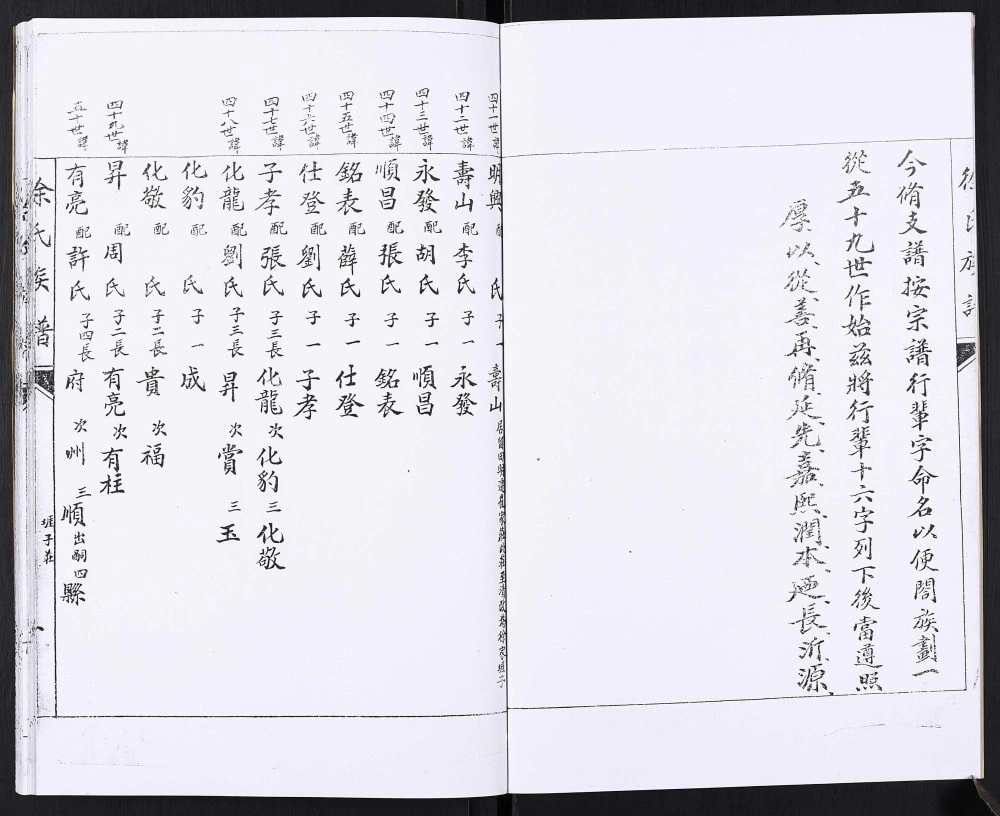 徐氏族譜
今脩支譜按宗譜行輩字命名以便閤族劃一
從五十九世作始茲將行輩十六字列下後當遵照
厚以從善再脩延先嘉熙潤本延長沂源
四十一世諱 明興 配 氏 子一 壽山
四十二世諱 壽山 配李氏 子一 永發
四十三世諱 永發 配胡氏 子一 順昌
四十四世諱 順昌 配張氏 子一 銘表
四十五世諱 銘表 配薛氏 子一 仕登
四十六世諱 仕登 配劉氏 子一 子孝
四十七世諱 子孝 配張氏 子三長 化龍 次 化豹 三 化敬
四十八世諱 化龍 配劉氏 子三長 昇 次 賞 三 玉
化豹 配 氏 子一 成
化敬 配 氏 子二長 貴 次 福
四十九世諱 昇 配周氏 子二長 有亮 次 有柱
五十世諱 有亮 配許氏 子四長 府 次 州 三 順 出嗣 四 縣
徐氏族譜 一 堐子莊